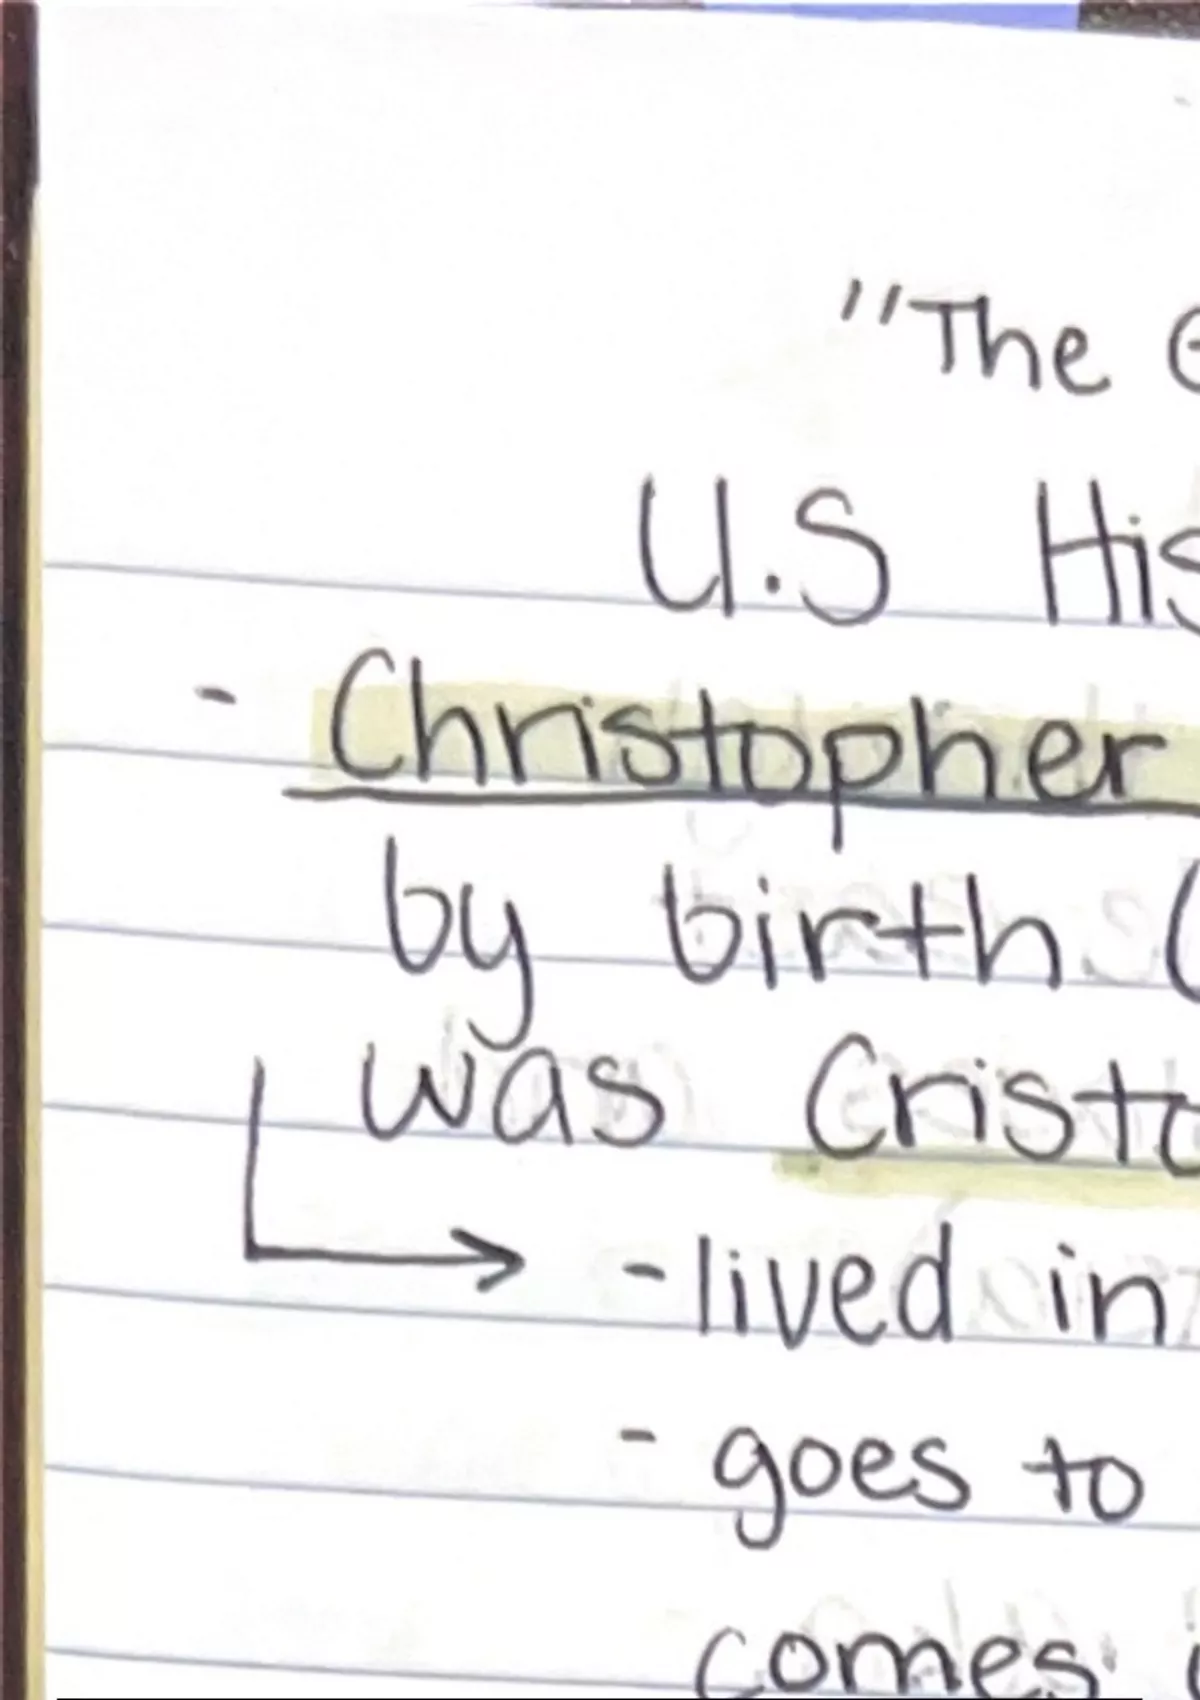 "The
U.S His
- Christopher
by birth (
was Cristo
- lived in
- goes to
comes